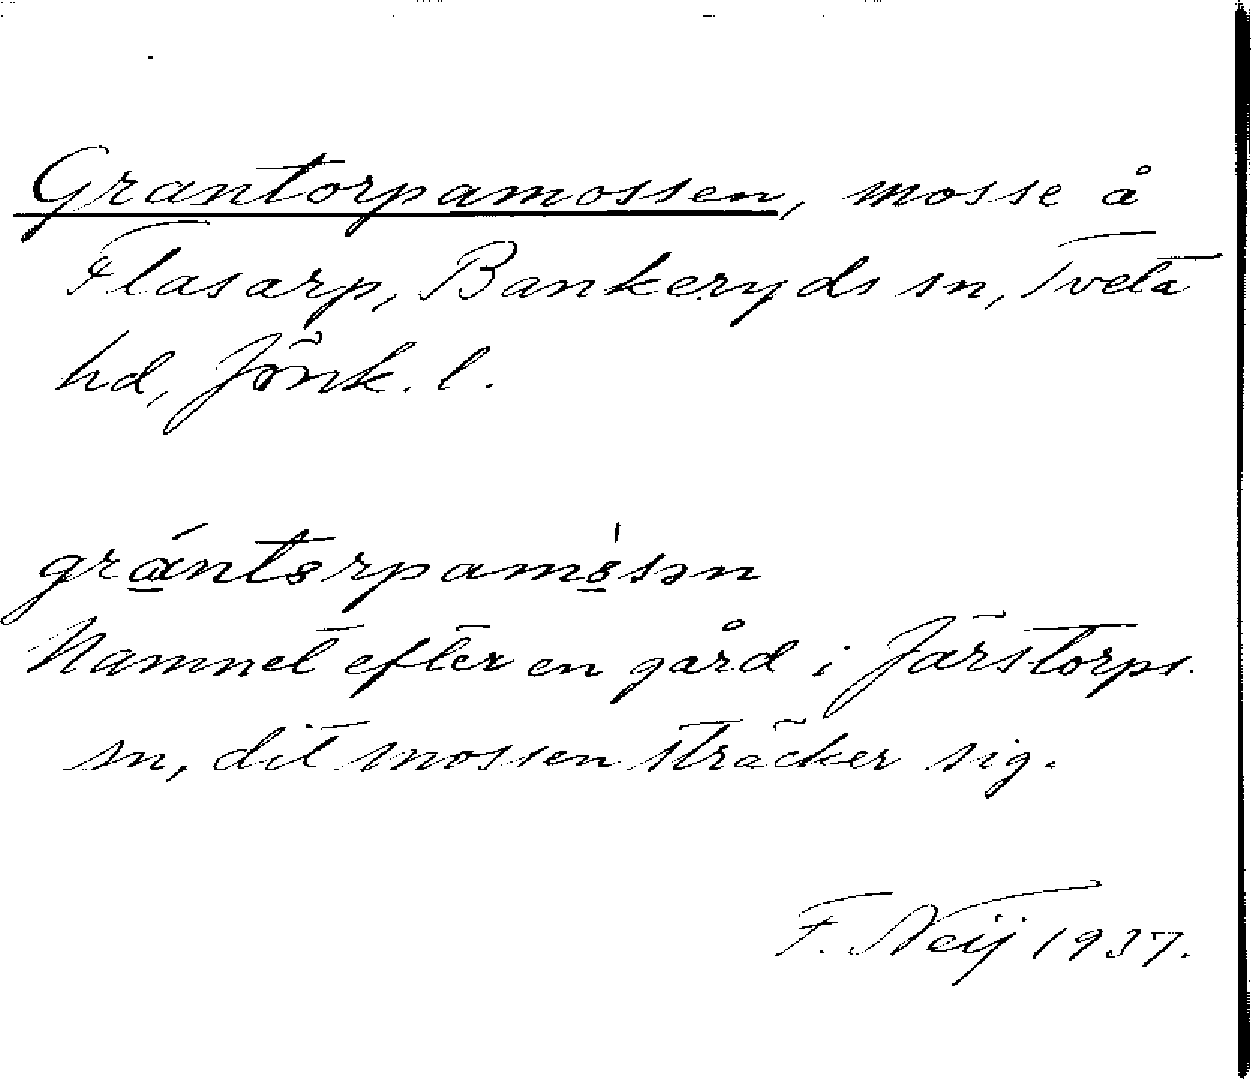 Grantorpamossen, mosse å
Flasarp, Bankeryds sn, Tveta
hd, Jönk. l.
grántɷrpamɷ̀sən
Namnet efter en gård i Järstorps
sn, dit mossen sträcker sig.
F. Neij 1937.